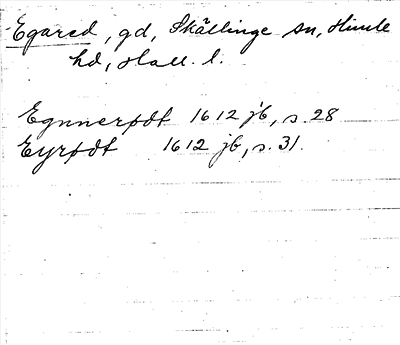 Egared, gd, Skällinge sn, Himle
hd, Hall. l.
Egnnerødt 1612 jb, s. 28
Eyrødt 1612 jb, s. 31.